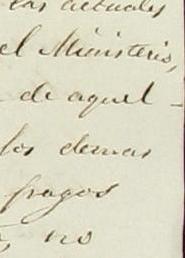 las actuales
el Ministerio,
de aquel-
los demas
fragos
no